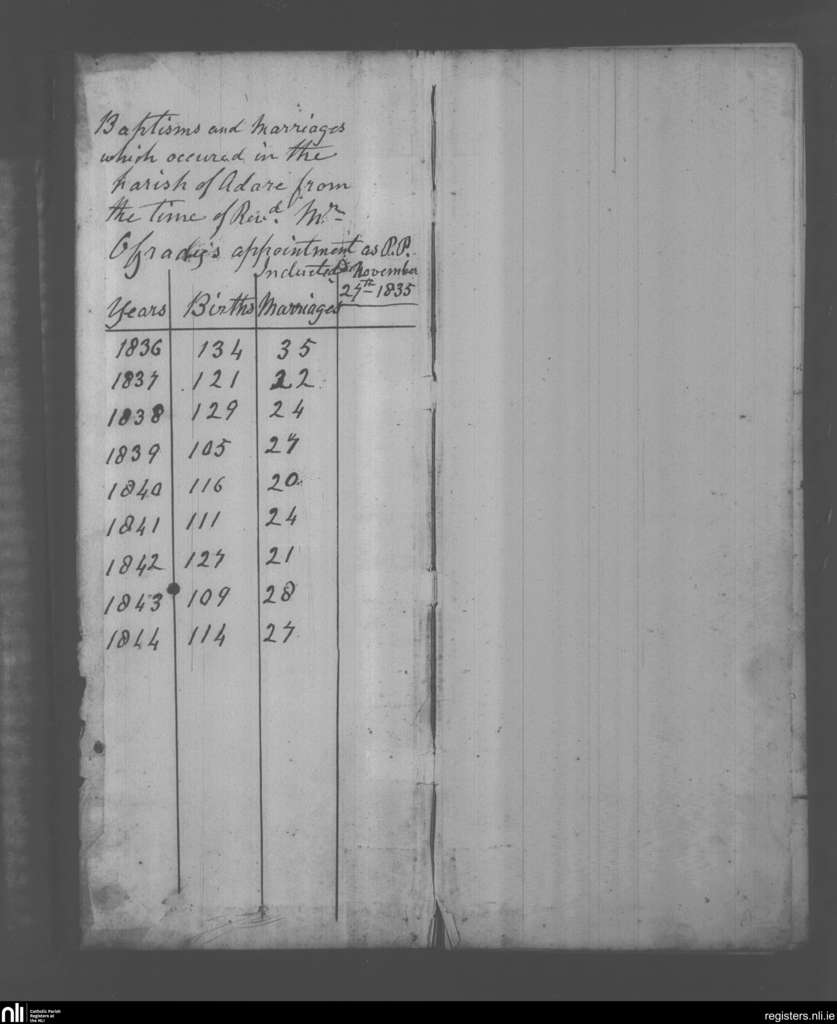 Baptisms and Marriages
which occured in the
parish of Adare from
the time of Revd. Mr
Ogradys appointment as P.P.
Inducted November
27th 1835
Years Births Marriages
1836 134 35
1837 121 22
1838 129 24
1839 105 27
1840 116 20
1841 111 24
1842 127 21
1843 109 28
1844 114 27
nli Catholic Parish Registers at the NLI
registers.nli.ie